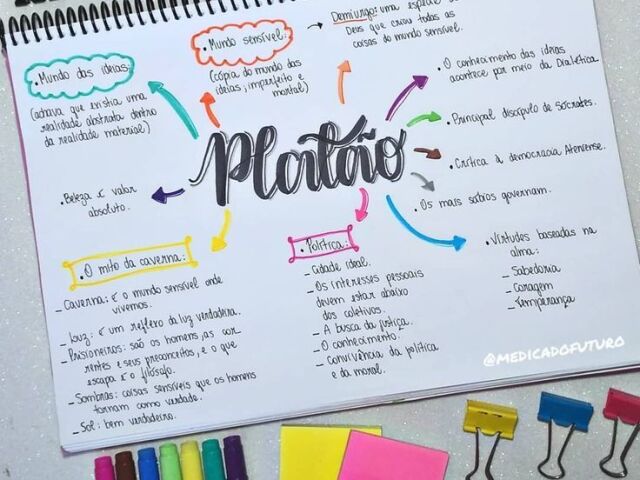 • Mundo das ideias:
(achava que existia uma
realidade abstrata dentro
da realidade material)
• Mundo sensível:
(cópia do mundo das
ideias, imperfeito e
mortal)
Demiurgo: uma espécie de
Deus que criou todas as
coisas do mundo sensível.
• O conhecimento das ideias
acontece por meio da Dialética.
• Principal discípulo de Sócrates.
• Crítica à democracia Ateniense.
• Os mais sabios governam.
Platão
• Beleza é valor
absoluto.
• O mito da caverna:
– Caverna: é o mundo sensível onde
vivemos.
– Luz: é um reflexo da luz verdadeira.
– Prisioneiros: saõ os homens, as cor
rentes e seus preconceitos, e o que
escapa é o filósofo.
– Sombras: coisas sensíveis que os homens
tornam como verdade.
– Sol: bem verdadeiro.
• Política:
– Cidade ideal.
– Os interesses pessoais
devem estar abaixo
dos coletivos.
– A busca da justiça.
– O conhecimento.
– Convivência da política
e da moral.
• Virtudes baseadas na
alma:
– Sabedoria
– Coragem
– Temperança
@MEDICADOFUTURO